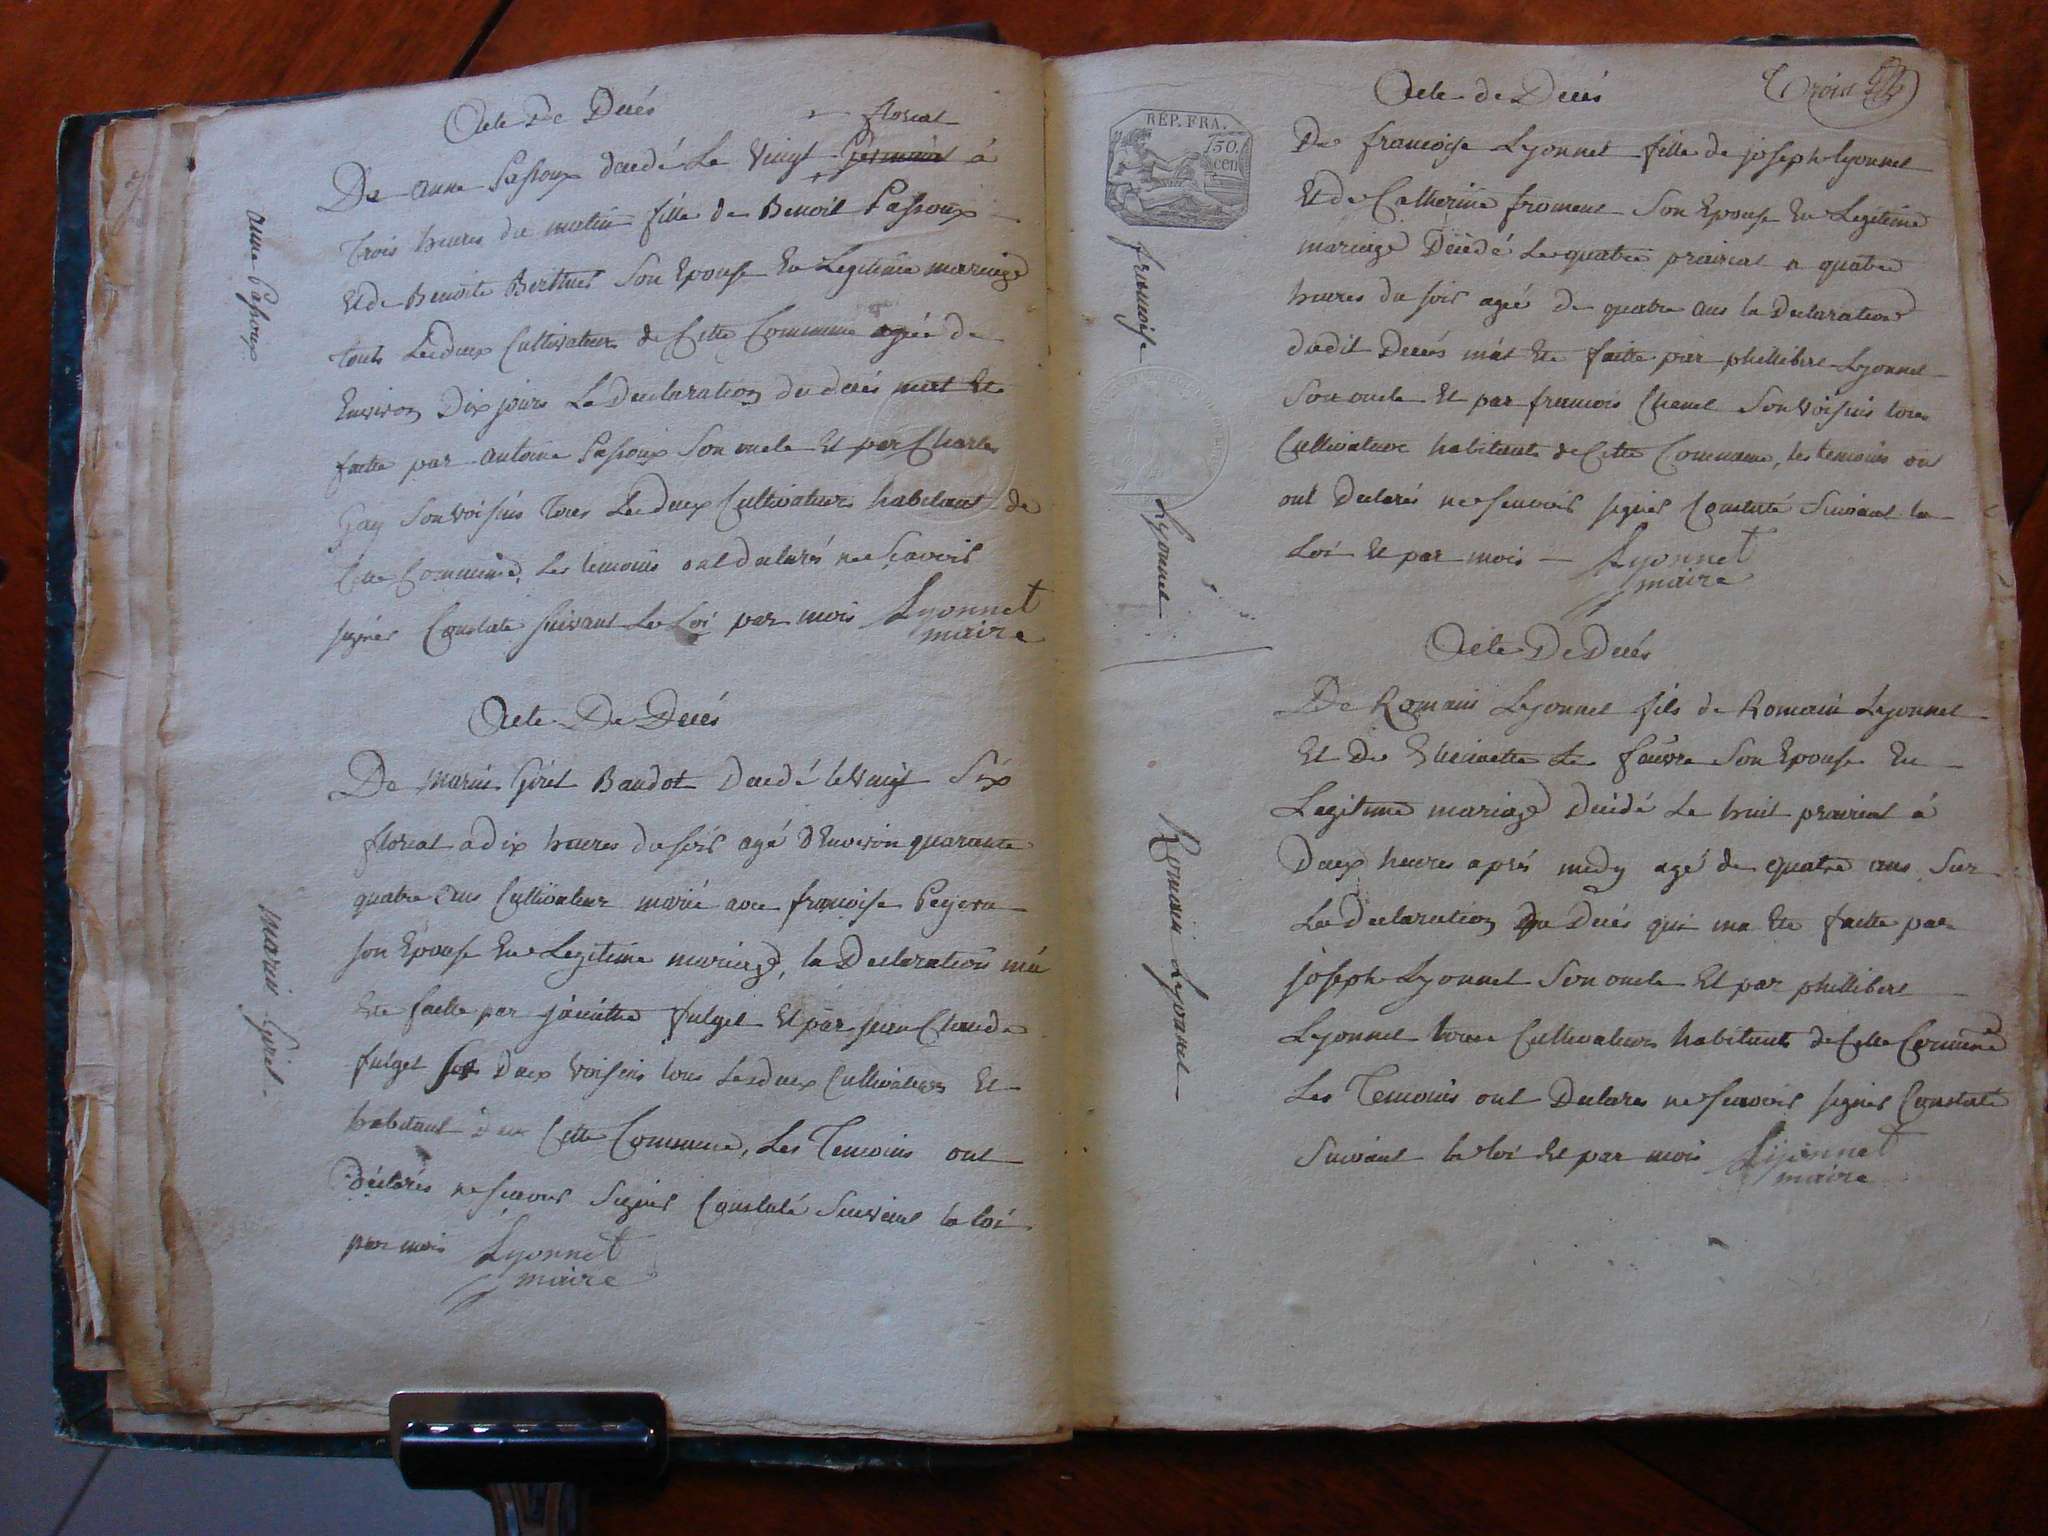 Acte De Decés
floreal
De anne Passoux decedé Le Vingt Germinal á
trois heures du matin fille de Benoit Passoux
Et de Benoite Berthier Son Epouse En Legitime mariage
touts Lesdeux Cultivateurs de Cette Commune agée de
Environ Dix jours La Declaration du decés mat Ete
faitte par antoine Passoux Son oncle Et par Charle
Gay Son voisins tous Lesdeux Cultivateurs habitant de
Cette Commune, Les temoins ont declarés ne Scavoir
signer Constate suivant La Loi par mois Lyonnet
maire
anne Passoux
Acte De Decés
De marin Giret Baudot Decedé le vingt Six
floreal a dix heures du soir agé d'Environ quarante
quatre ans Cultivateur marié avec francoise
son Epouse En Legitime mariage, la Declaration má
Ete faitte par jácinthe fulget Et par jean Claude
fulget Ses Deux voisins tous Lesdeux Cultivateurs Et
habitant De Cette Commune, Les Temoins ont
déclarés ne scavoir Signer Constaté Suivant la loi
par mois Lyonnet
maire
marin Giret
Trois
Acte de Decés
RÉP. FRA.
50.
cen
De francoise Lyonnet fille de joseph lyonnet
Et de Catherine froment Son Epouse En Legitime
mariage Décédé Le quatre prairial a quatre
heures du soir ageé de quatre ans la Declaration
dudit Decés mát Ete faitte par phillibert Lyonnet
Son oncle Et par francois Son voisins tous
Cultivateurs habitants de Cette Commune, les temoins on
ont Declarés ne scavoir signer Constaté Suivant la
Loi Et par mois Lyonnet
maire
francoise Lyonnet
Acte De Decés
De Romain Lyonnet fils de Romain Lyonnet
Et De Le faivre Son Epouse En
Legitime mariage Décédé Le huit prairial á
Deux heures aprés midy agé de quatre ans Sur
La Declaration Du Decés qui ma Ete faitte par
joseph Lyonnet Son oncle Et par phillibert
Lyonnet tous Cultivateurs habitants de Cette Commune
Les Temoins ont Declares ne scavoir signer Constaté
Suivant la loi Et par mois Lyonnet
maire
Romain Lyonnet